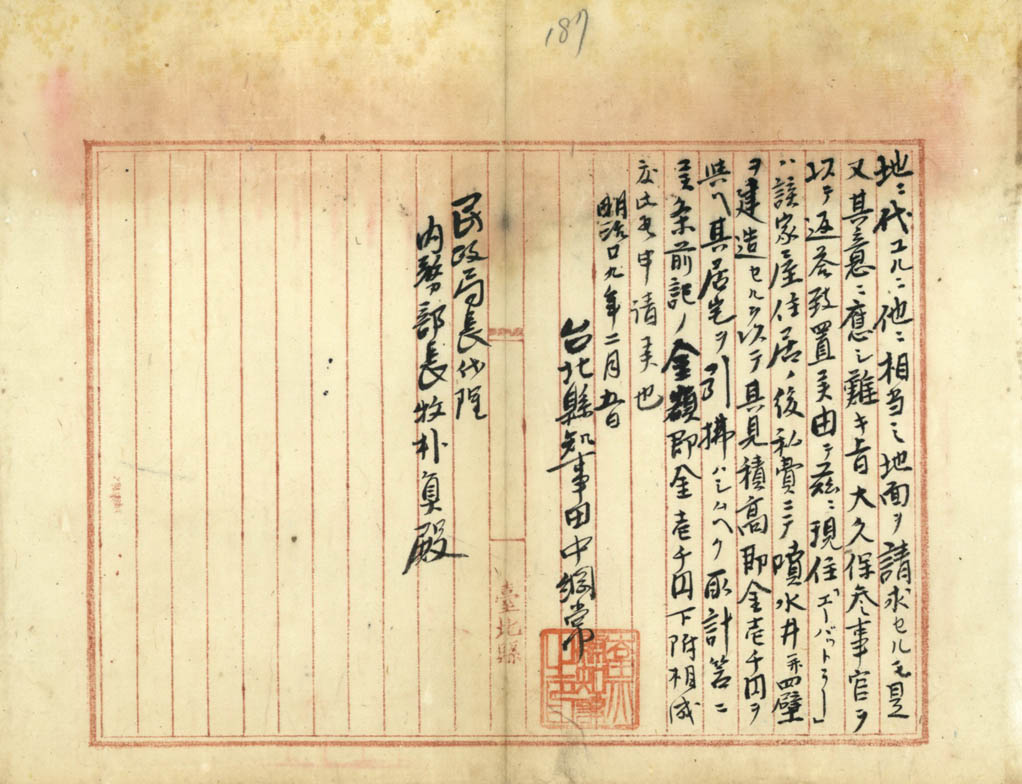 187
地ニ代エルニ他ニ相当ノ地面ヲ請求セルモ是
又其意ニ應シ難キ旨大久保参事官ヲ
以テ返答致置候由テ茲ニ現住「エーバットラー」
ハ該家屋住居ノ後私費ニテ噴水井并四壁
ヲ建造セルヲ以テ其見積高即金壱千円ヲ
與ヘ其居宅ヲ引拂ハシムヘク取計筈ニ
候条前記ノ金額即金壱千円下附相成
度此段申請候也
明治廿九年二月五日
台北縣知事田中綱常
民政局長代理
内務部長牧朴真殿
臺北縣